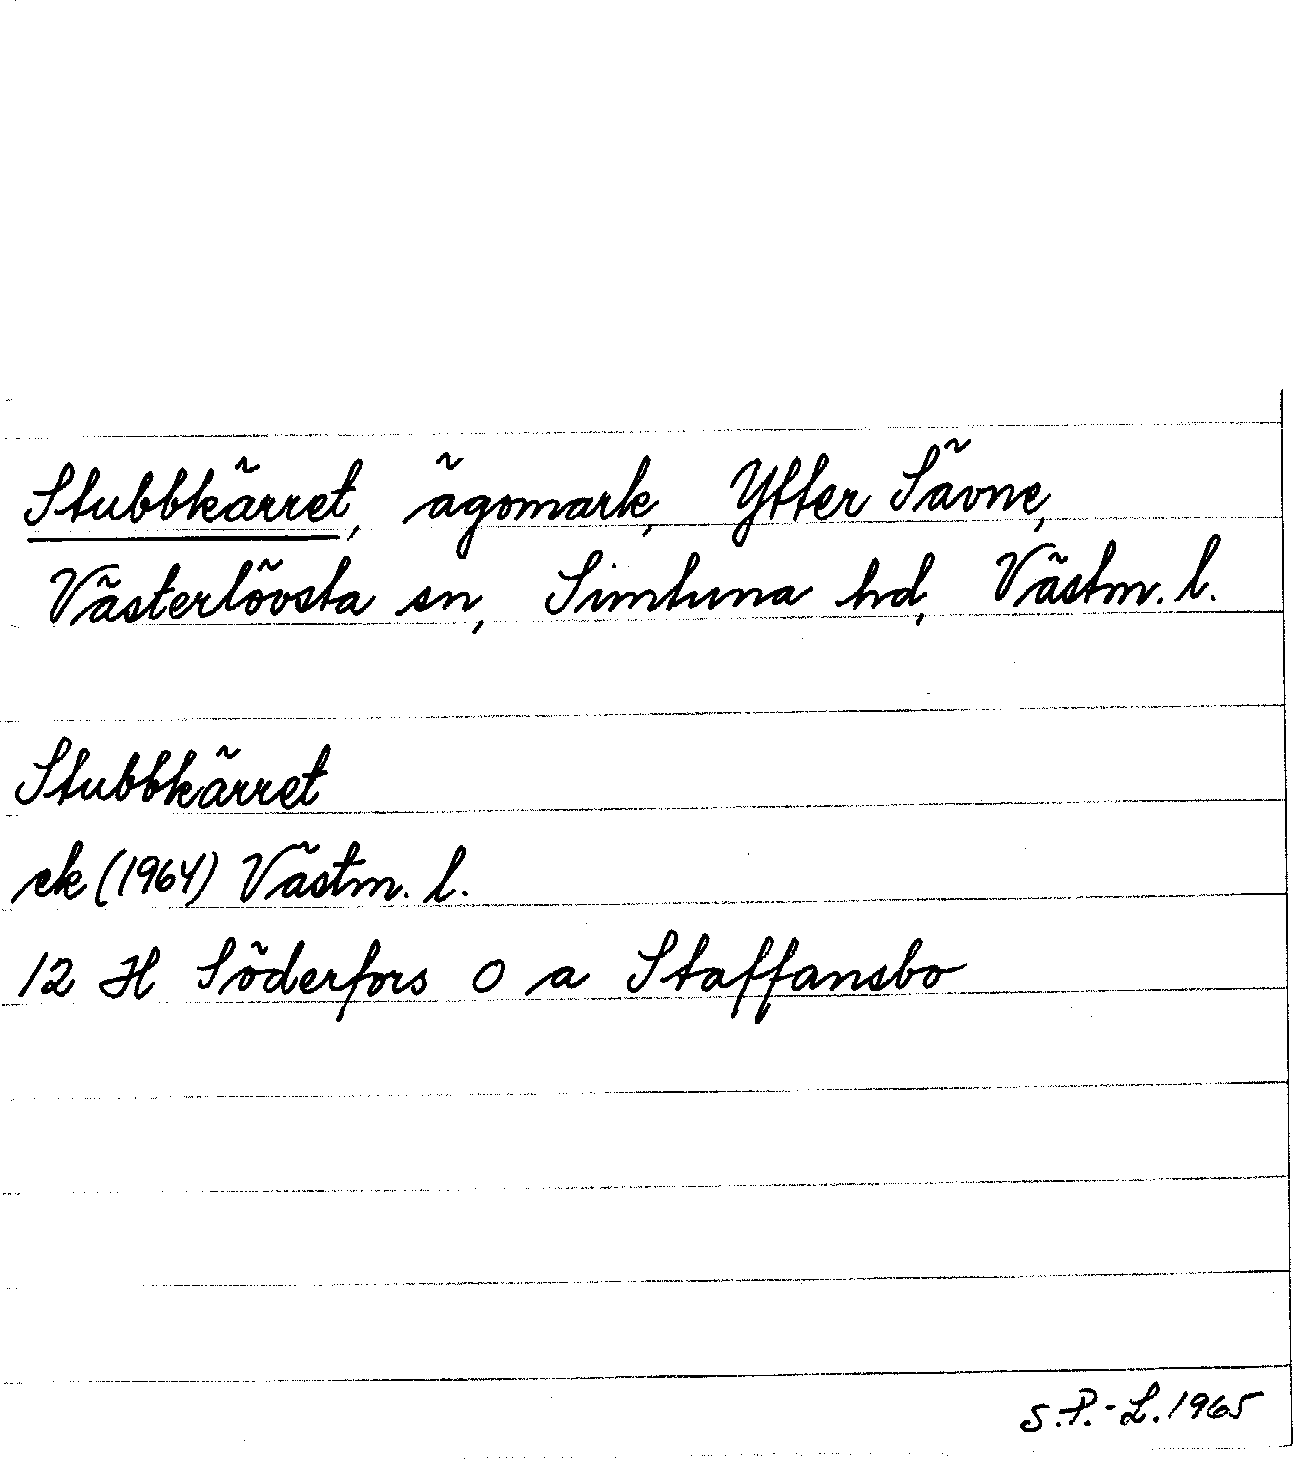 Stubbkärret, ägomark, Ytter Sävne,
Västerlövsta sn, Simtuna hd, Västm. l.
Stubbkärret
ek (1964) Västm. l.
12 H Söderfors 0 a Staffansbo
S.P.-L. 1965